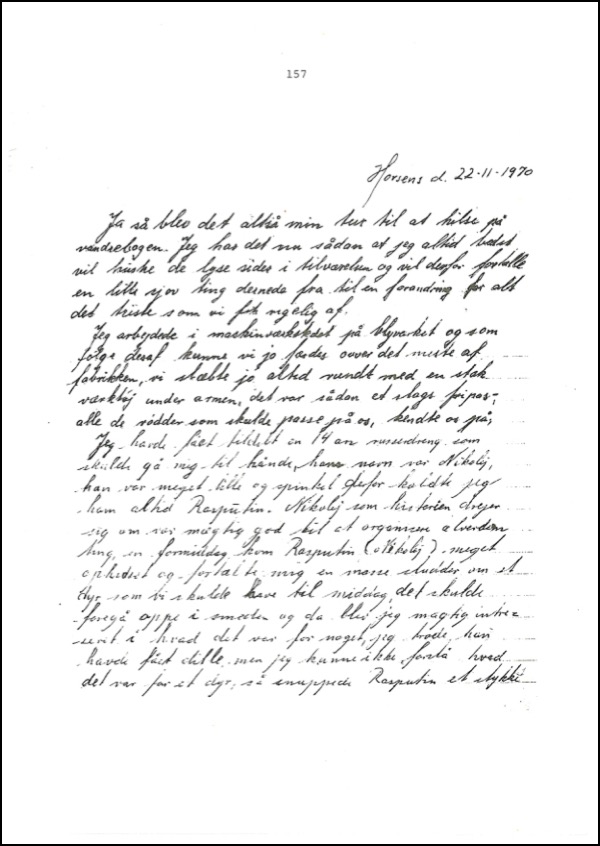 157
Horsens d. 22-11-1970
Ja så blev det altså min tur til at hilse på
vandrebogen. Jeg har det nu sådan at jeg altid bedst
vil huske de lyse sider i tilværelsen og vil derfor fortælle
en lille sjov ting derneda fra til en forandring for alt
det triste som vi fik rigelig af.
Jeg arbejdede i maskinværkstedet på blyvarket og som
følge deraf kunne vi jo færdes oover det meste af
fabrikken, vi slæbte jo altid rundt med en stak
værktøj under armen, det var sådan et slags fripas,
alle de rødder som skulde passe på os, kendte os på,
Jeg havde fået tildelt en 14 års russerdreng som
skulde gå mig til hånde, hans navn var Nikolej,
han var meget lille og spinkel derfor kaldte jeg
ham altid Rasputin. Nikolej som historien drejer
sig om var mægtig god til at organisere alverdens
ting, en formiddag kom Rasputin (Nikolej) meget
ophidset og fortalte mig en masse sludder om et
dyr som vi skulde have til middag, det skulde
foregå oppe i smedien og da blev jeg mægtig intre=
seret i hvad det var for noget, jeg troede, han
havde fået dille, men jeg kunne ikke forstå hvad
det var for et dyr, så snuppede Rasputin et stykke